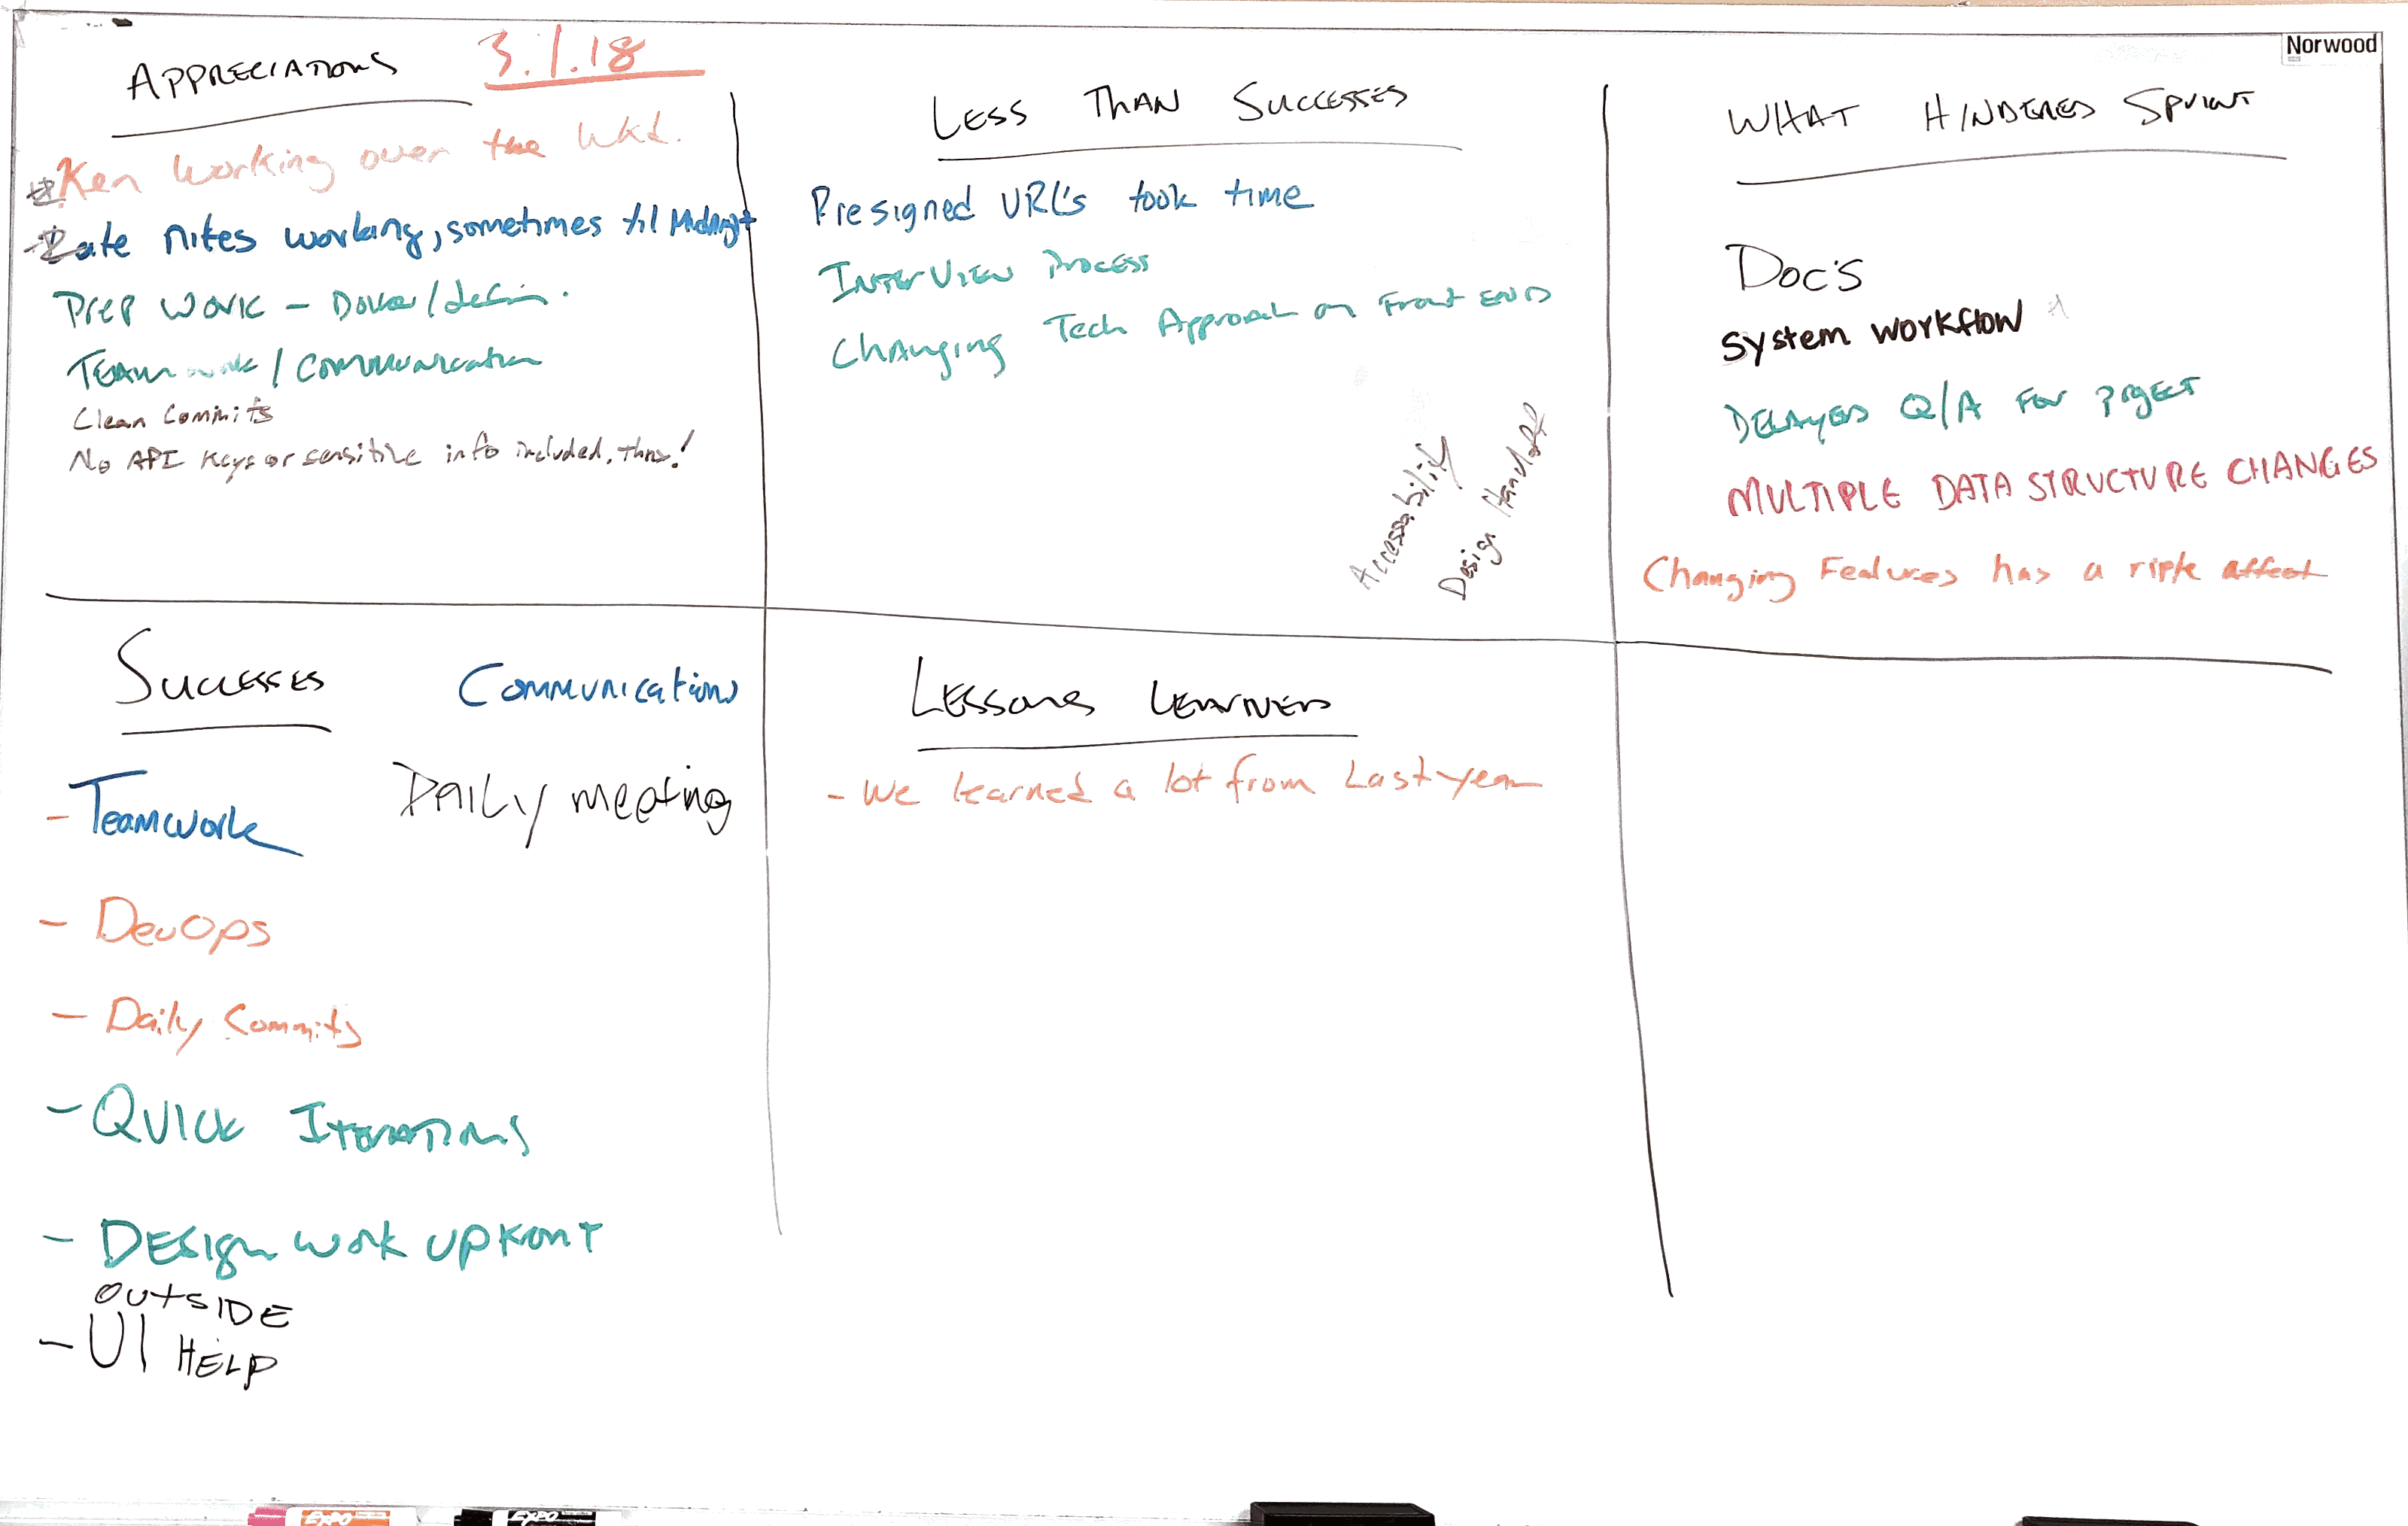 APPRECIATIONS 3.1.18
Ken working over the wkd.
Late nites working, sometimes til Midnight
Prep work - Docker/
TEAMwork / Communication
Clean Commits
No API Keys or sensitive info included,
LESS THAN SUCCESSES
Presigned URL's took time
INTERVIEW PROCESS
CHANGING Tech Approach on Front END
Accessability
Design Handoff
WHAT HINDERED SPRINT
Doc's
System workflow
DELAYED Q/A FOR PROJECT
MULTIPLE DATA STRUCTURE CHANGES
Changing Features has a ripple affect
SUCCESSES
Communication
- Teamwork
DAILY meeting
- DevOps
- Daily Commits
- QUICK ITERATIONS
- DESIGN work UPFRONT
OUTSIDE
- UI HELP
LESSONS LEARNED
- We learned a lot from Last year
Norwood
EXPO
EXPO